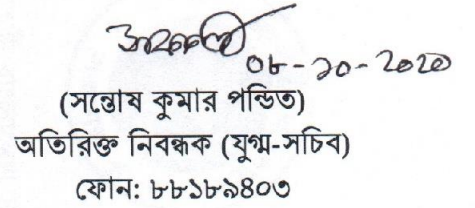 ০৮-১০-২০২০
(সন্তোষ কুমার পন্ডিত)
অতিরিক্ত নিবন্ধক (যুগ্ম-সচিব)
ফোন: ৮৮১৮৯৪০৩